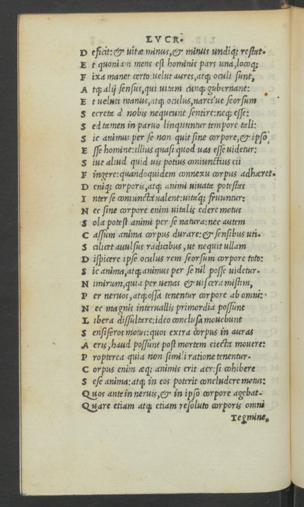 LVCR.
D eficit: & uitæ minus, & minus undiq; restat.
E t quoniam mens est hominis pars una, locoq;
F ixa manet certo: uelut aures, atq; oculi sunt,
A tq; alij sensus, qui uitam cunq; gubernant:
E t ueluti manus, atq; oculus, nares'ue seorsum
S ecreta a nobis nequeunt sentire: neq; esse:
S ed tamen in paruo linquuntur tempore tali:
S ic animus per se non quit sine corpore, & ipso
E sse homine: illius quasi quod uas esse uidetur:
S iue aliud quid uis potius coniunctius eii
F ingere: quandoquidem connexu corpus adhæret.
D eniq; corporis, atq; animi uiuata potestas
I nter se coniuncta ualent: uitaq; fruuntur:
N ec sine corpore enim uitalis edere motus
S ola potest animi per se natura: nec autem
C assum anima corpus durare: & sensibus uti.
S cilicet auulsus radicibus, ut nequit ullam
D ispicere ipse oculus rem seorsum corpore toto:
S ic anima, atq; animus per se nil posse uidetur.
N imirum, quia per uenas & uiscera mistim,
P er neruos, atq; ossa tenentur corpore ab omni:
N ec magnis interuallis primordia possunt
L ibera dissultare: ideo conclusa mouebunt
S ensiferos motus: quos extra corpus in auras
A eris, haud possunt post mortem eiecta moueri:
P ropterea quia non simili ratione tenentur.
C orpus enim atq; animis erit aer: si cohibere
S ese anima: atq; in eos poterit concludere motus:
Q uos ante in neruis, & in ipso corpore agebat.
Q uare etiam atq; etiam resoluto corporis omni
Tegmine,